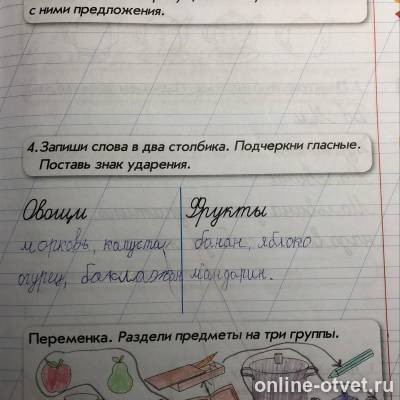 с ними предложения.
4. Запиши слова в два столбика. Подчеркни гласные.
Поставь знак ударения.
Овощи
морковь, капуста,
огурец, баклажан
Фрукты
банан, яблоко
мандарин.
Переменка. Раздели предметы на три группы.
online-otvet.ru